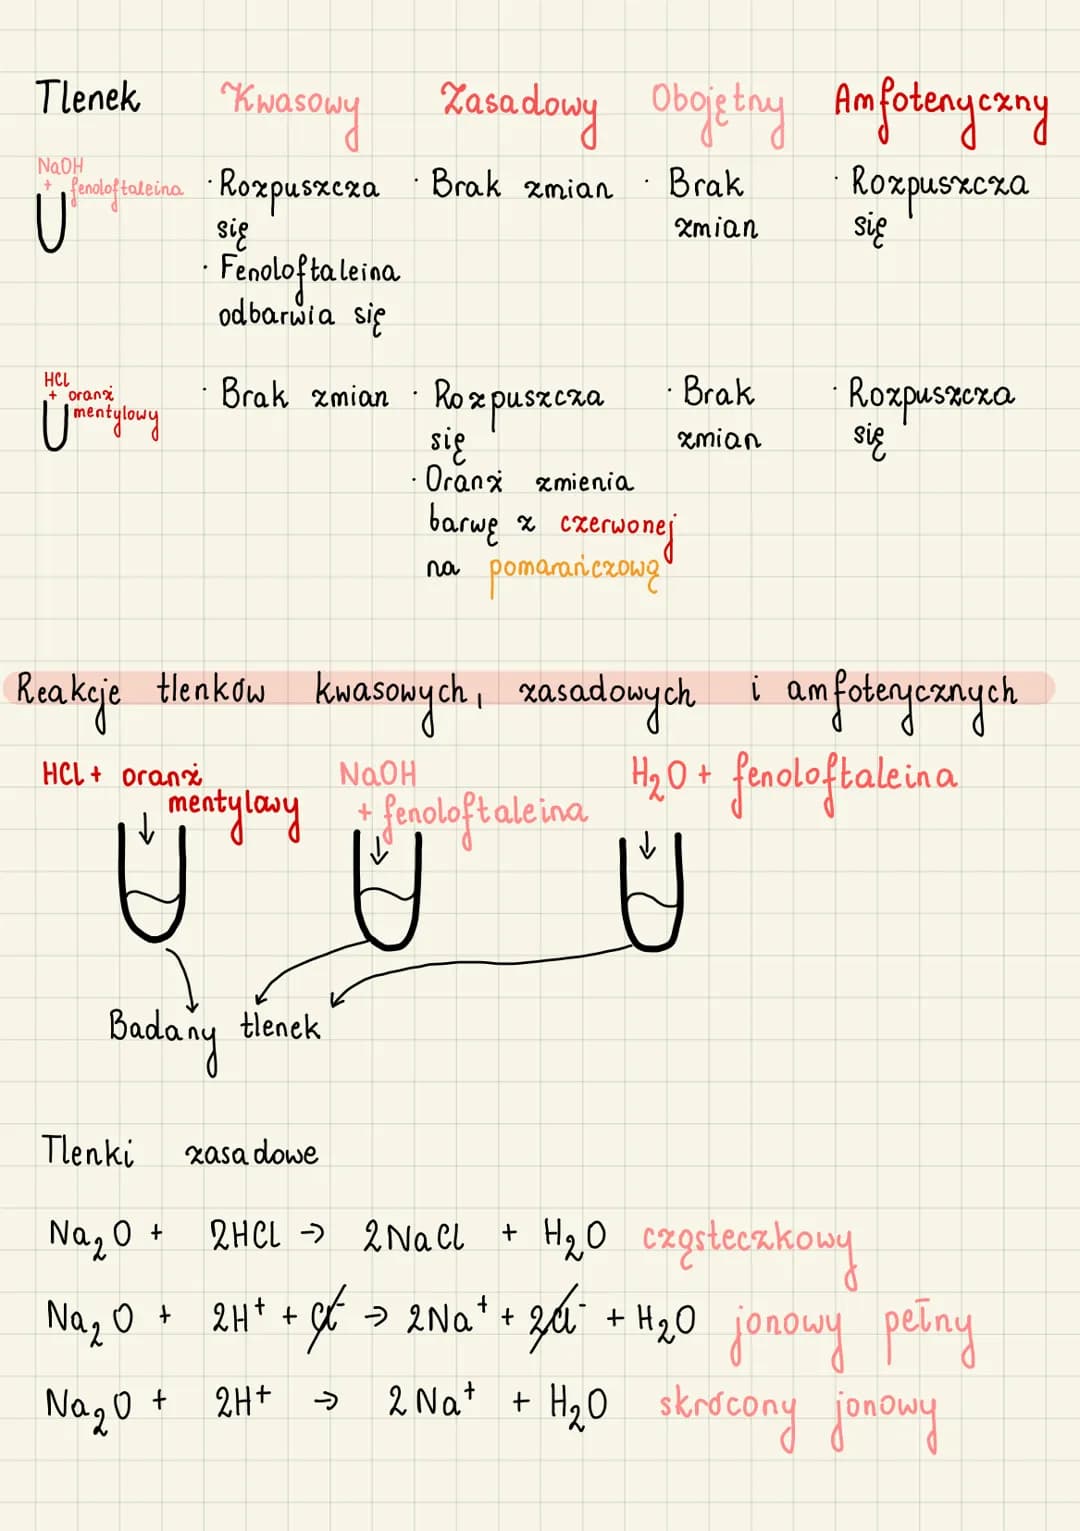 Tlenek Kwasowy Zasadowy Obojętny Amfoteryczny
NaOH
+ fenoloftaleina
· Rozpuszcza
się
· Fenoloftaleina
odbarwia się
· Brak zmian
· Brak
zmian
· Rozpuszcza
się
HCl
+ oranż
mentylowy
· Brak zmian
· Rozpuszcza
się
· Oranż zmienia
barwę z czerwonej
na pomarańczową
· Brak
zmian
· Rozpuszcza
się
Reakcje tlenków kwasowych, zasadowych i amfoterycznych
HCl + oranż
mentylowy
NaOH
+ fenoloftaleina
H₂O + fenoloftaleina
Badany tlenek
Tlenki zasadowe
Na₂O + 2HCl → 2NaCl + H₂O cząsteczkowy
Na₂O + 2H⁺ + Cl⁻ → 2Na⁺ + 2Cl⁻ + H₂O jonowy pełny
Na₂O + 2H⁺ → 2Na⁺ + H₂O skrócony jonowy